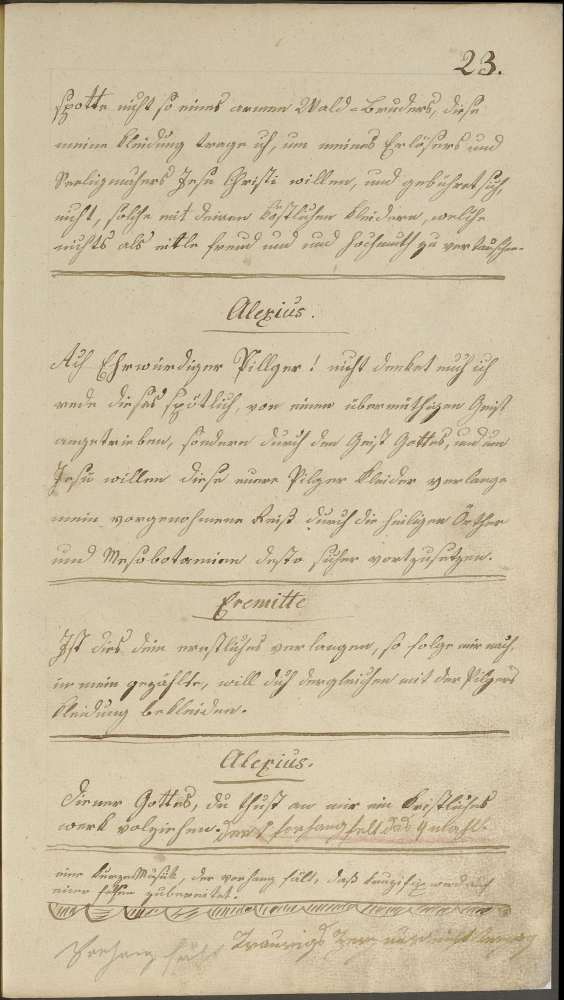 23.
spotte nicht so eines armen Wald-Bruders, diese
meine Kleidung trage ich, um meines Erlösers und
Seeligmachers Jesu Christi willen, und gebühret sich,
nicht, solche mit deinen köstlichen Kleidern, welche
nichts als eitle freud und und hochmuth zu vertauschen.
Alexius.
Ach Ehrwürdiger Pillger! nicht denket auch ich
rede dieses spötlich, von einem übermüthigen Geist
angetrieben, sondern durch den Geist Gottes, und um
Jesu willen diese euere Pilger Kleider verlange
mein vorgenohmene Reiß durch die heiligen Örther
und Mesobotamien desto sicher vortzusetzen.
Eremitte
Ist dies dein ernstliches verlangen, so folge mir nach.
in mein gezällte, will dich dergleichen mit der Pilgers
Kleidung bekleiden.
Alexius.
Diener Gottes, du thust an mir ein Kristliches
werk volziehen. Der forhang felt
eine kurze Musik, der vorhang fält, daß Kruzifix wird auf
einer zubereitet.
Vorhang fält Traurige